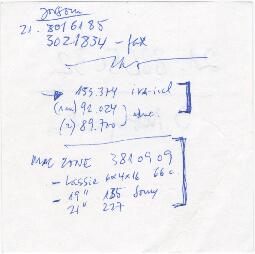 21. 3016185
3021834 - fax
139.374 iva incl
(1m) 92.024
(2) 89.700
MAC ZONE 3810909
- Lassie 6x4x16 66 c.
- 19" 185 Sony
- 21" 227